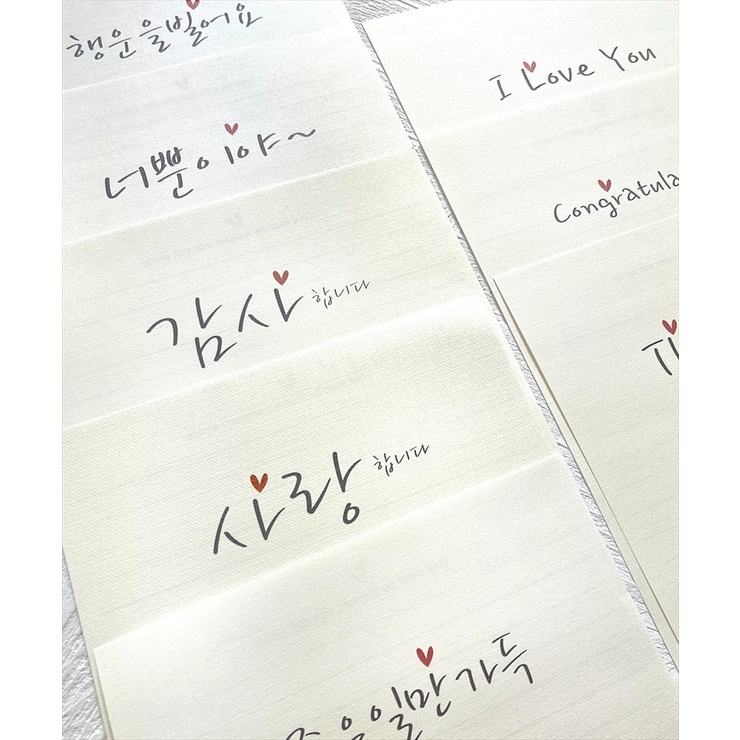 행운을빌어요
너뿐이야~
감사합니다
사랑합니다
일만가득
I Love You
Congratula